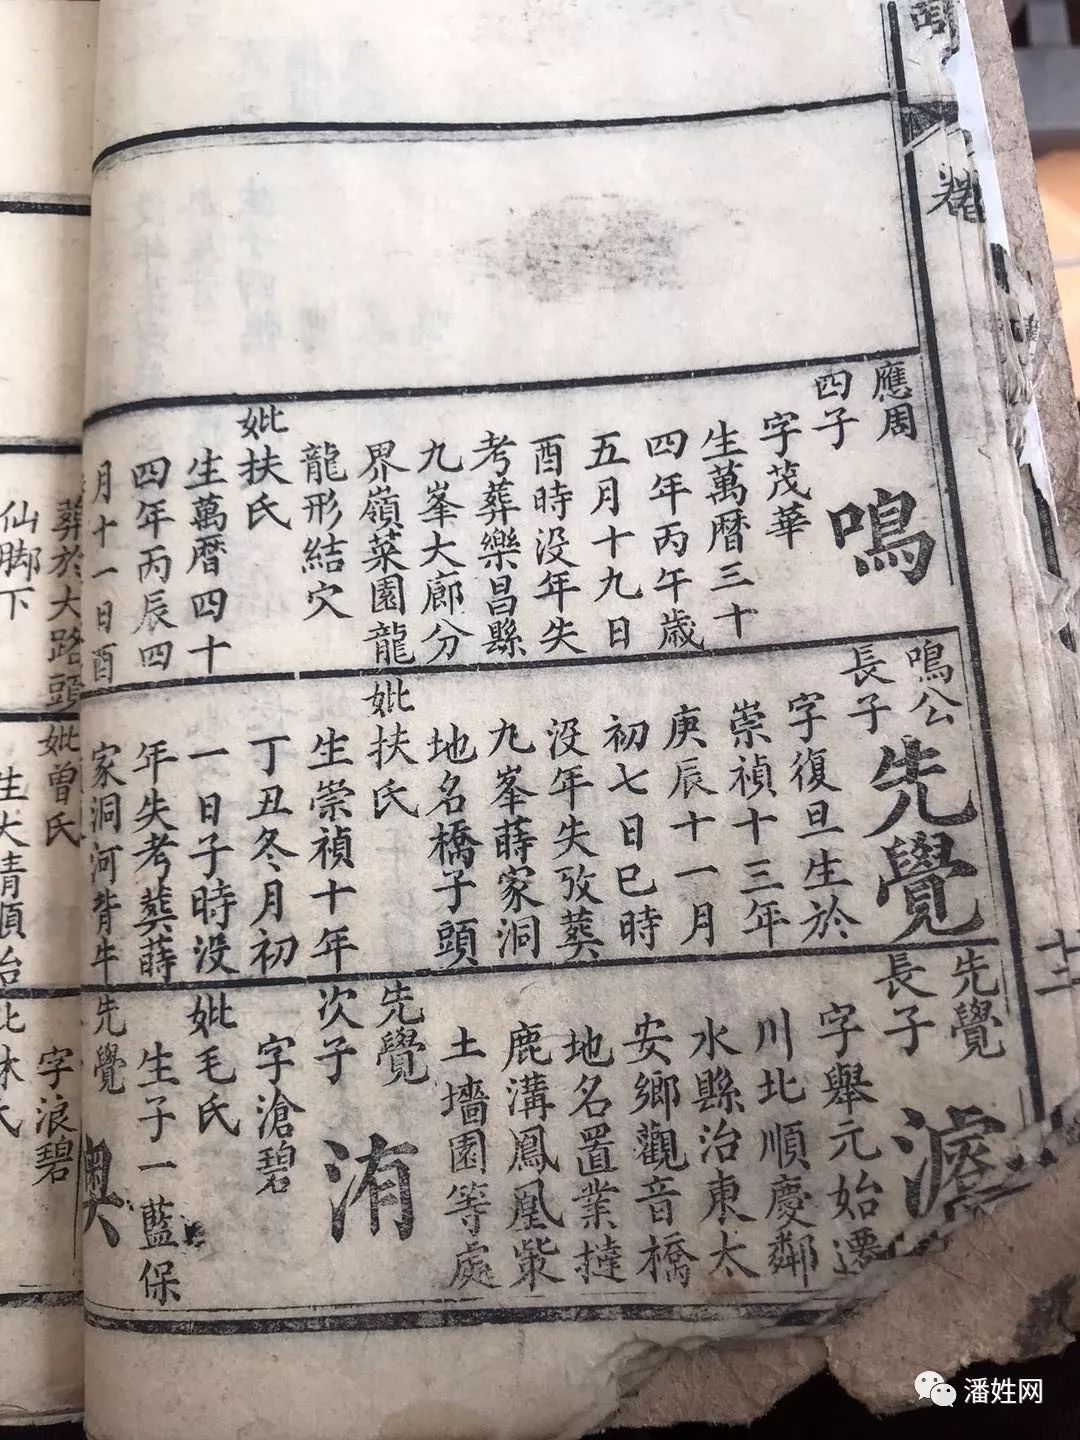 卷
十二
應周
四子
鳴
字茂華
生萬曆三十
四年丙午歲
五月十九日
酉時没年失
考葬樂昌縣
九峯大廊分
界嶺菜園龍
龍形結穴
妣扶氏
生萬曆四十
四年丙辰四
月十一日酉
葬於大路頭
仙脚下
鳴公
長子
先覺
字復旦生於
崇禎十三年
庚辰十一月
初七日巳時
没年失攷葬
九峯蒔家洞
地名橋子頭
妣扶氏
生崇禎十年
丁丑冬月初
一日子時没
年失考葬蒔
家洞河背牛
妣曾氏
生大清順治
先覺
長子
字舉元始遷
川北順慶鄰
水縣治東太
安鄉觀音橋
地名置業撻
鹿溝鳳凰柴
土墻園等處
先覺
次子
洧
字滄碧
妣毛氏
生子一藍保
先覺
字浪碧
妣林氏
潘姓网